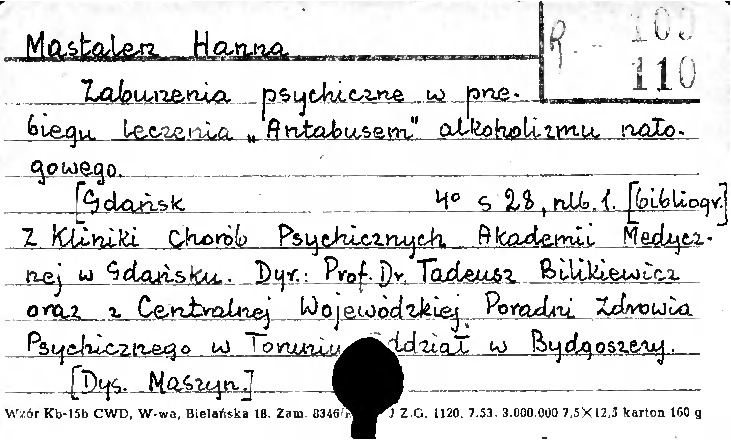 Mastalerz Hanna
R. 109
110
Zaburzenia psychiczne w prze-
biegu leczenia „Antabusem" alkoholizmu nało-
gowego.
[Gdańsk 4° s 28, nlb. 1. [bibliogr.]
Z Kliniki Chorób Psychicznych Akademii Medycz-
nej w Gdańsku. Dyr.: Prof. Dr. Tadeusz Bilikiewicz
oraz z Centralnej Wojewódzkiej Poradni Zdrowia
Psychicznego w Toruniu Oddział w Bydgoszczy.
[Dys. Maszyn.]
Wzór Kb-15b CWD, W-wa, Bielańska 18. Zam. 8346/ J Z.G. 1120. 7.53. 3.000.000 7,5×12,5 karton 160 g